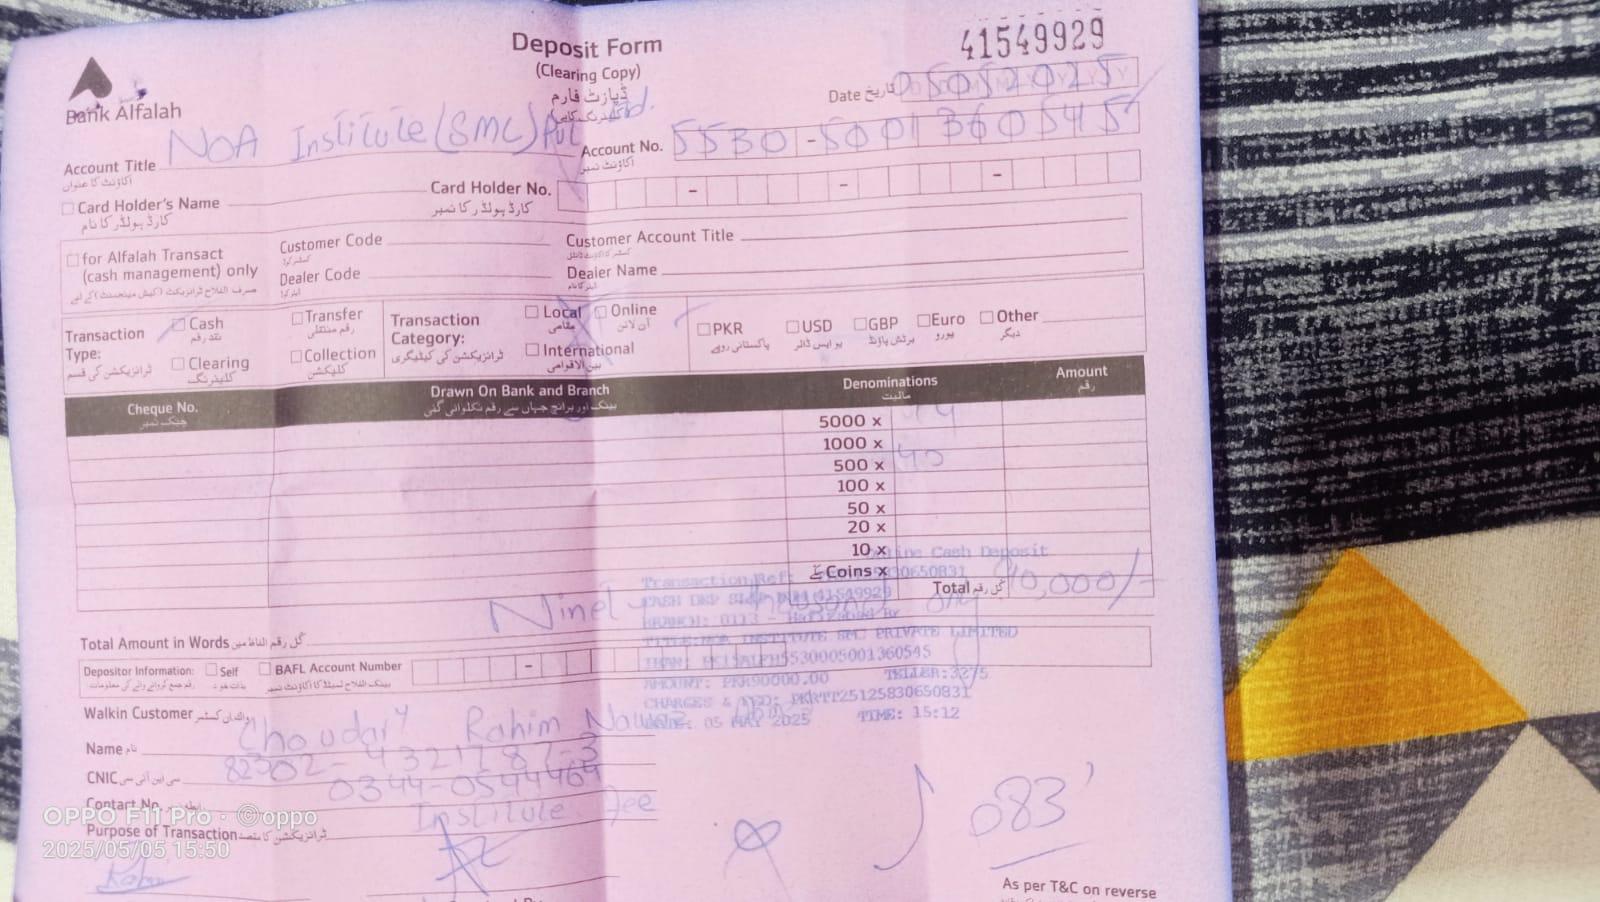 Deposit Form
41549929
(Clearing Copy)
ڈپازٹ فارم
Bank Alfalah
Date تاریخ 05052025
NOA Institute (SMC) Pvt Ltd.
Account Title
اکاؤنٹ کا عنوان
Account No. 5530-5001360545
اکاؤنٹ نمبر
Card Holder's Name
کارڈ ہولڈر کا نام
Card Holder No.
کارڈ ہولڈر کا نمبر
for Alfalah Transact
(cash management) only
Customer Code
Customer Account Title
Dealer Code
Dealer Name
Transaction Type:
ٹرانزیکشن کی قسم
Cash
نقد رقم
Transfer
رقم منتقلی
Clearing
کلیئرنگ
Collection
کلیکشن
Transaction Category:
ٹرانزیکشن کی کیٹیگری
Local
مقامی
Online
آن لائن
International
بین الاقوامی
PKR
پاکستانی روپے
USD
یو ایس ڈالر
GBP
برٹش پاؤنڈ
Euro
یورو
Other
دیگر
Cheque No.
چیک نمبر
Drawn On Bank and Branch
بینک اور برانچ جہاں سے رقم نکلوائی گئی
Denominations
مالیت
Amount
رقم
5000 x
1000 x
500 x 40
100 x
50 x
20 x
10 x
Coins x سکے
Total کل رقم 90,000/-
Online Cash Deposit
Transaction Ref:
CASH DEP SLIP 41549929
BRANCH: 0113
TITLE: NOA INSTITUTE SMC PRIVATE LIMITED
5530005001360545
AMOUNT: PKR90000.00 TELLER:3275
CHARGES & FED: PKRTT25125830650831
DATE: 05 MAY 2025 TIME: 15:12
Total Amount in Words کل رقم الفاظ میں
Depositor Information: Self BAFL Account Number
Walkin Customer
Name نام Choudary Rahim Nawaz
CNIC سی این آئی سی 82302-4321787-3
Contact No. 0344-0544464
Purpose of Transaction ٹرانزیکشن کا مقصد Institute fee
083
As per T&C on reverse
OPPO F11 Pro · ©oppo
2025/05/05 15:50